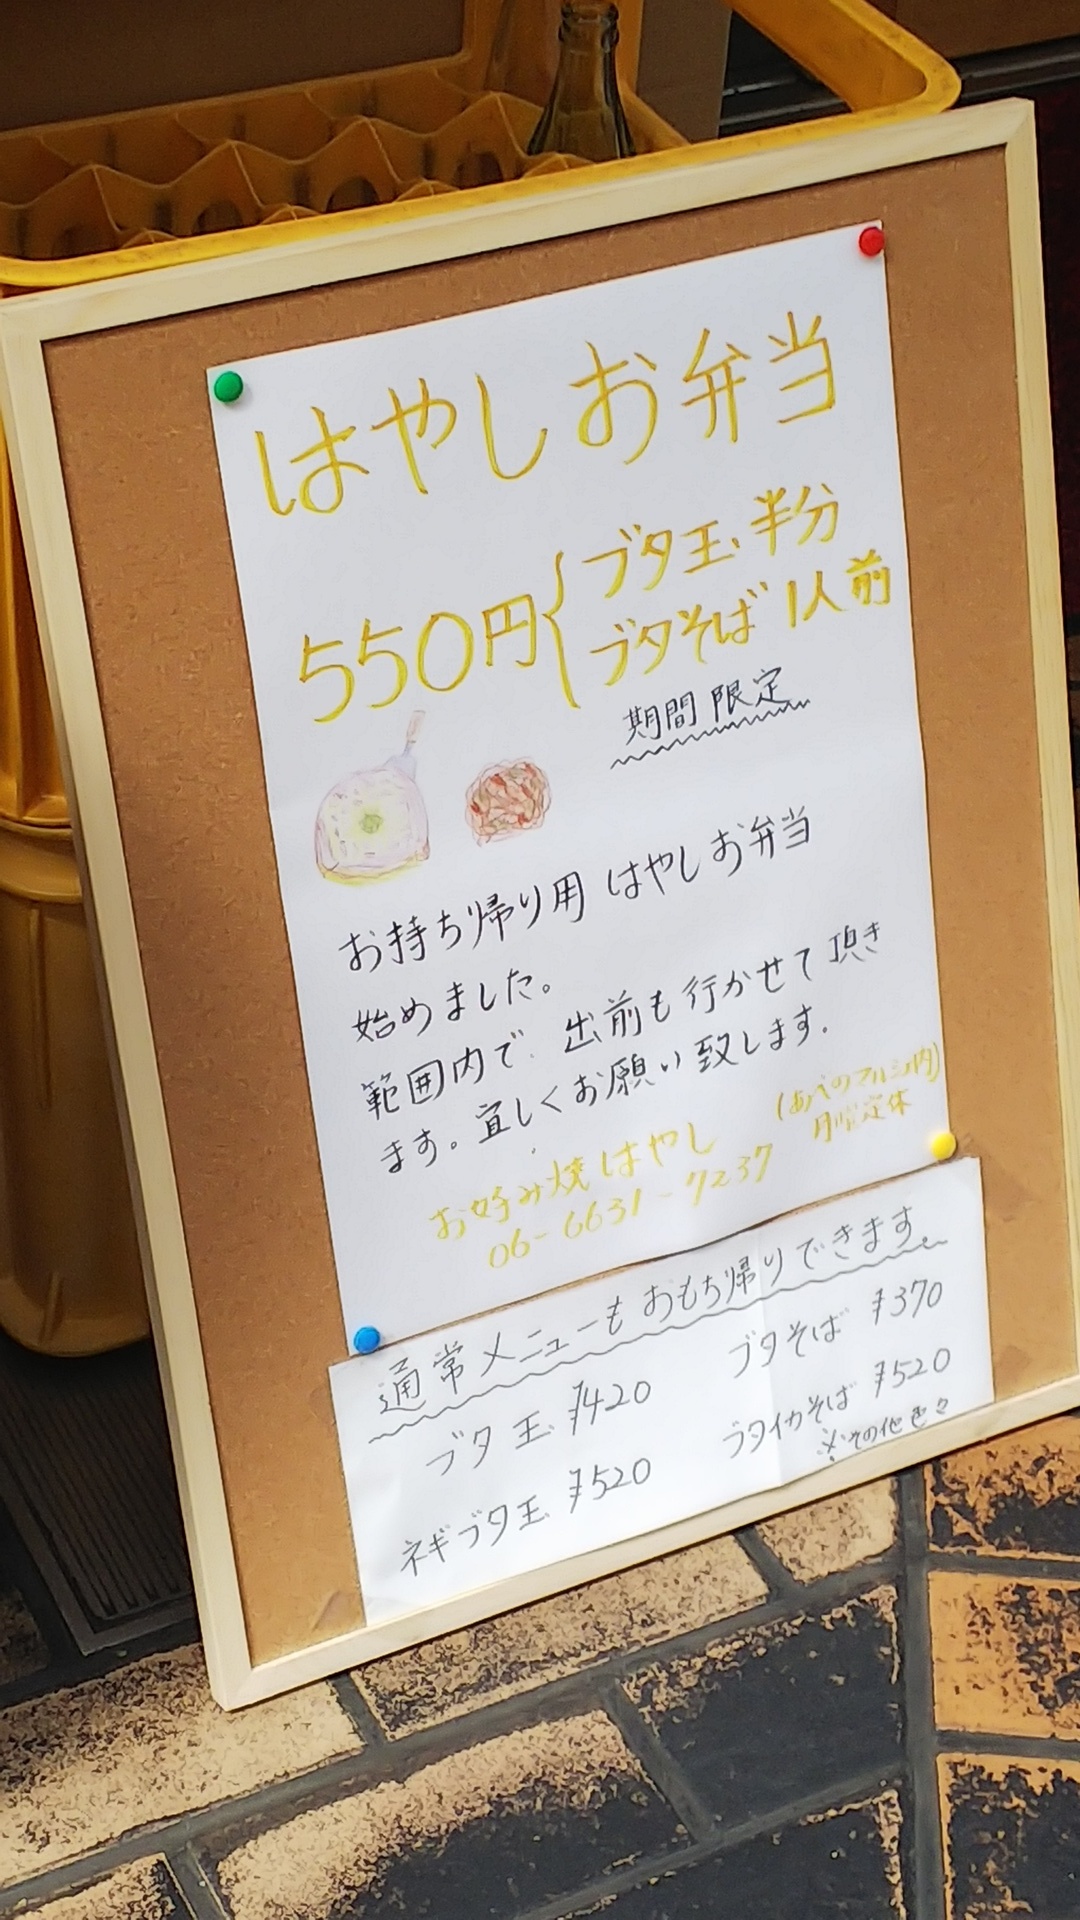 はやしお弁当
550円
ブタ玉、半分
ブタそば 1人前
期間限定
お持ち帰り用 はやしお弁当
始めました。
範囲内で、出前も行かせて頂き
ます。宜しくお願い致します。
お好み焼はやし
06-6631-7237
(あべのマルシェ内)
月曜定休
通常メニューもおもち帰りできます。
ブタ玉 ¥420
ブタそば ¥370
ネギブタ玉 ¥520
ブタイカそば ¥520
※その他色々